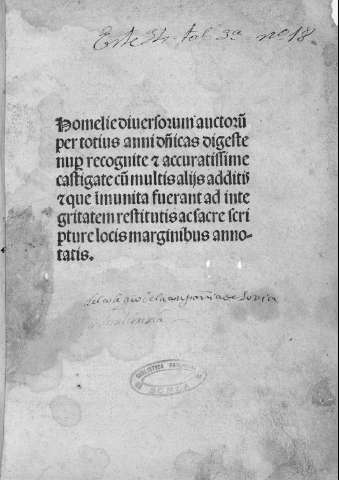 Este Est. tab. 3ª nº 18
Homelie diuersorum auctorũ
per totius anni dñicas digeste
nup recognite ⁊ accuratissime
castigate cũ multis alijs additis
⁊ que imunita fuerant ad inte
gritatem restitutis ac sacre scri
pture locis marginibus anno-
tatis.
de Soria
BIBLIOTECA
SORIA